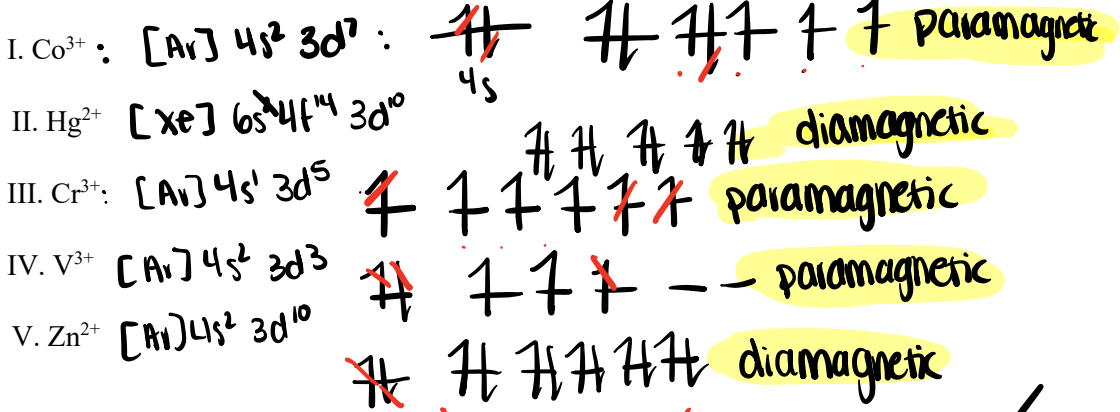 I. Co³⁺ : [Ar] 4s² 3d⁷ : 4s paramagnetic
II. Hg²⁺ [Xe] 6s² 4f¹⁴ 3d¹⁰ diamagnetic
III. Cr³⁺: [Ar] 4s¹ 3d⁵ paramagnetic
IV. V³⁺ [Ar] 4s² 3d³ paramagnetic
V. Zn²⁺ [Ar] 4s² 3d¹⁰ diamagnetic